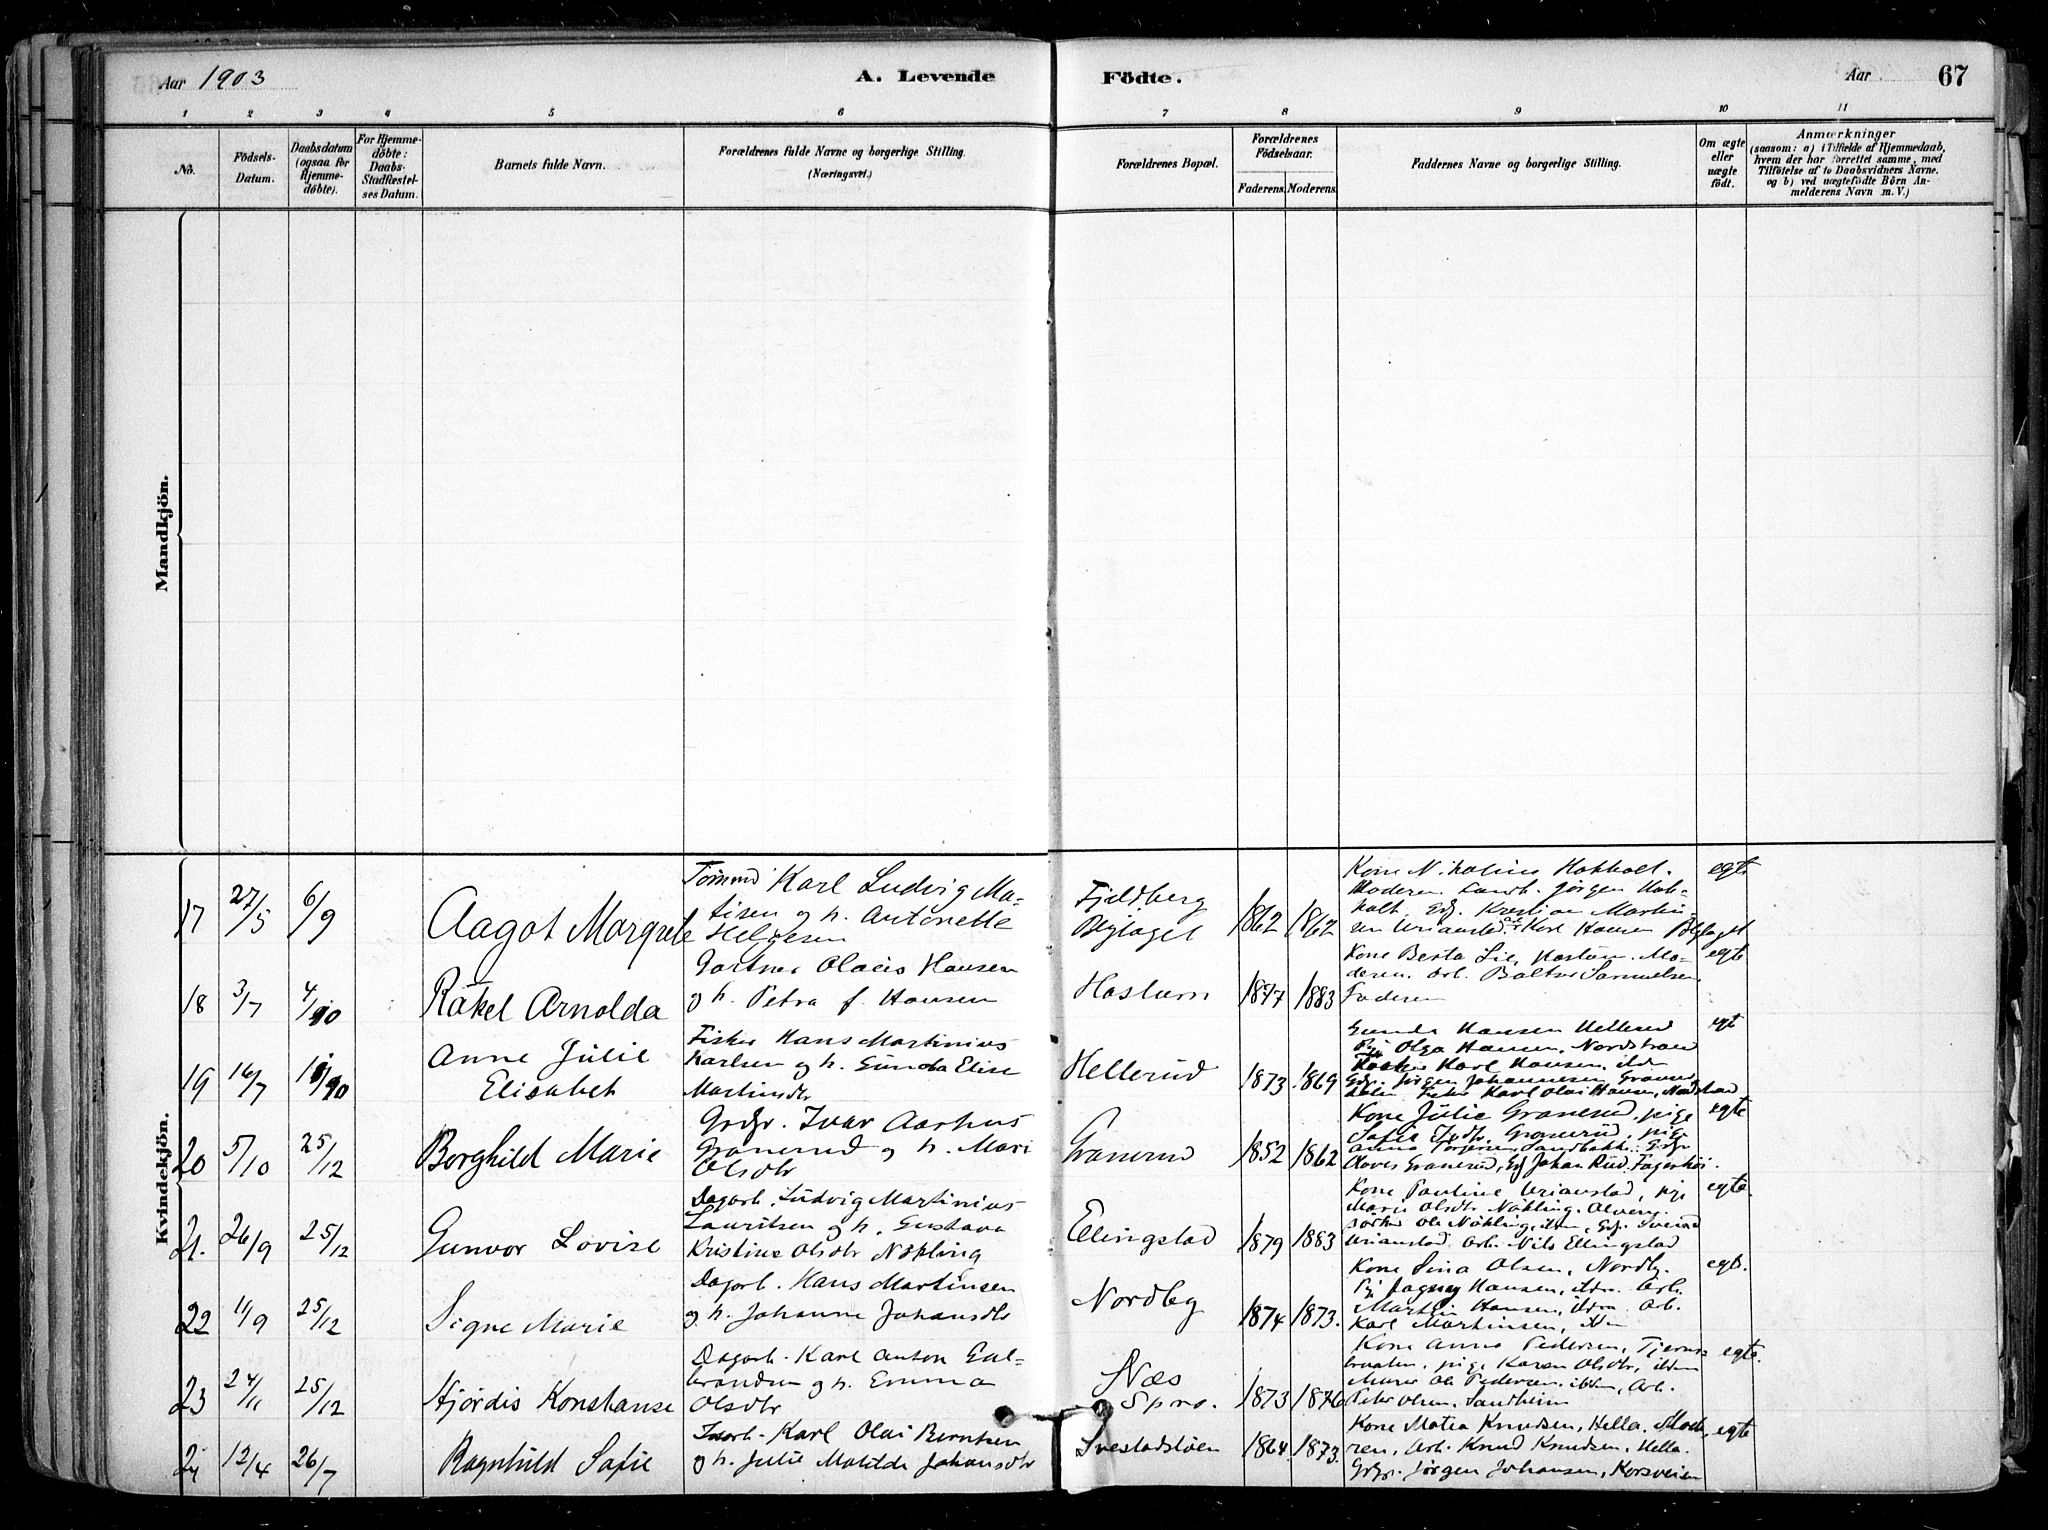 Aar 1903
A. Levende Födte.
Aar 67
1 2 3 4 5 6 7 8 9 10 11
No.
Födsels-Datum.
Daabsdatum (ogsaa for Hjemmedöbte).
For Hjemmedöbte: Daabs-Stadfæstelses Datum.
Barnets fulde Navn.
Forældrenes fulde Navne og borgerlige Stilling. (Næringsvei.)
Forældrenes Bopæl.
Forældrenes Födselsaar.
Faderens. Moderens.
Faddernes Navne og borgerlige Stilling.
Om ægte eller uægte födt.
Anmærkninger
(saasom: a) i Tilfælde af Hjemmedaab,
hvem der har forrettet samme, med
Tilföielse af to Daabsvidners Navne.
og b) ved uægtefödte Börn Anmelderens Navn m. V.)
Mandkjön.
Kvindekjön.
17 27/5 6/9 Aagot Margrete
Karl Ludvig Ma-
tisen og h. Antonette
Helgesen
Fjeldberg
1862 1862
Kone Nikoline Hakholt.
Moderen. Landb. Jörgen Hak-
holt. Kristian Martin-
sen Urianstad, Karl Hansen
egte
18 3/7 4/10 Råkel Arnolda
Gartner Olaus Hansen
og h. Petra f. Hansen
Haslum
1877 1883
Kone Berta Lie, Haslum. Mo-
deren. Arb. Samuelsen.
Faderen
egte
19 16/7 Anne Julie
Elisabet
Fisker Hans Martinius
Karlsen og h. Gunda Elise
Martinsdtr
Hellerud
1873 1869
Gunda Hansen Hellerud
Olga Hansen, Nordstrand
Karl Hansen, ibdm
Gdbr. Jörgen Johannesen
Karl Olai Hansen,
egt
20 5/10 25/12 Borghild Marie
Grdbr. Ivar Aarhus
Granerud og h. Mari
Olsdtr
Granerud
1852 1862
Kone Julie Granerud, pige
Granerud, pig
Anna Torgersen, Sandbakk.
Granerud, Johan Rud. Fagerhöi.
egte
21. 26/9 25/12 Gunvor Lovise
Dagarb. Ludvig Martinius
Lauritsen og h. Gustava
Kristine Olsdtr Nökling
Ellingstad
1879 1883
Kone Pauline Urianstad, pige
Marie Olsdtr Nökling.
Ole Nökling, ibdm,
Urianstad. Arb. Nils Ellingstad
egte.
22 11/9 25/12 Signe Marie
Dagarb. Hans Martinsen
og h. Johanne Johansdtr
Nordby
1874 1873.
Kone Lina Olsen, Nordby.
Pig Dagny Hansen, ibdm. Arb.
Martin Hansen, ibdm. Arb.
Karl Martinsen, ibdm
egte.
23 24/11 25/12 Hjördis Konstanse
Dagarb. Karl Anton Gul-
brandsen og h. Emma
Olsdtr
Næs
Spro.
1873 1876
Kone Anna Pedersen, Tjerns-
braaten, pige Karen Olsdtr, ibdm
Murer Ole Pedersen ibdm, Arb.
Peter Olsen, Sandheim
egte.
24 12/4 26/7 Ragnhild Sofie
Karl Olai Berntsen
og h. Julie Matilde Johansdtr
Svestadsløen
1864 1873.
Kone Matea Knudsen, Hella. Mode-
ren, Arb. Knud Knudsen, Hella.
Grdbr. Jörgen Johansen, Korsveien
egte